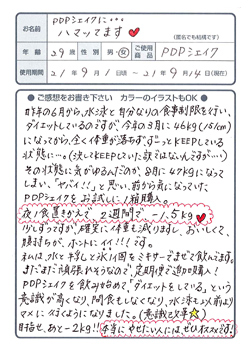 PDPシェイクに・・・
ハマってます♥
(匿名でも結構です)
年齢 29歳 性別 男・女 ご使用商品 PDPシェイク
使用期間 21年9月1日から21年9月14日(現在)
●ご感想をお書き下さい カラーのイラストもOK●
昨年の6月から、水泳と自分なりの食事制限を行い、
ダイエットしているのですが、今年の3月に46kg(151cm)
になってから、全く体重が落ちずずっとKEEPしている
状態に…。(決してKEEPしていた訳ではないんですが…)
その状態に気がゆるんだのか、8月に47kgになって
しまい、「ヤバイ!!」と思い、前から気になっていた
PDPシェイクをお試しに1箱購入。
夜1食置きかえて、2週間で-1.5kg♥
少しずつですが、確実に体重も減りますし、おいしくて、
腹持ちが、ホントにイイ!!です。
私は、水と牛乳と氷1個をミキサーでまぜて飲んでます。
まだまだ頑張れそうなので、定期便で追加購入!
PDPシェイクを飲み始めて、「ダイエットをしている」という
意識が高くなり、間食もしなくなり、水泳も以前より
マメに行くようになりました。(意識改革☆)
目指せ、あと-2kg!!本当にやせたい人にはぜひオススメです!